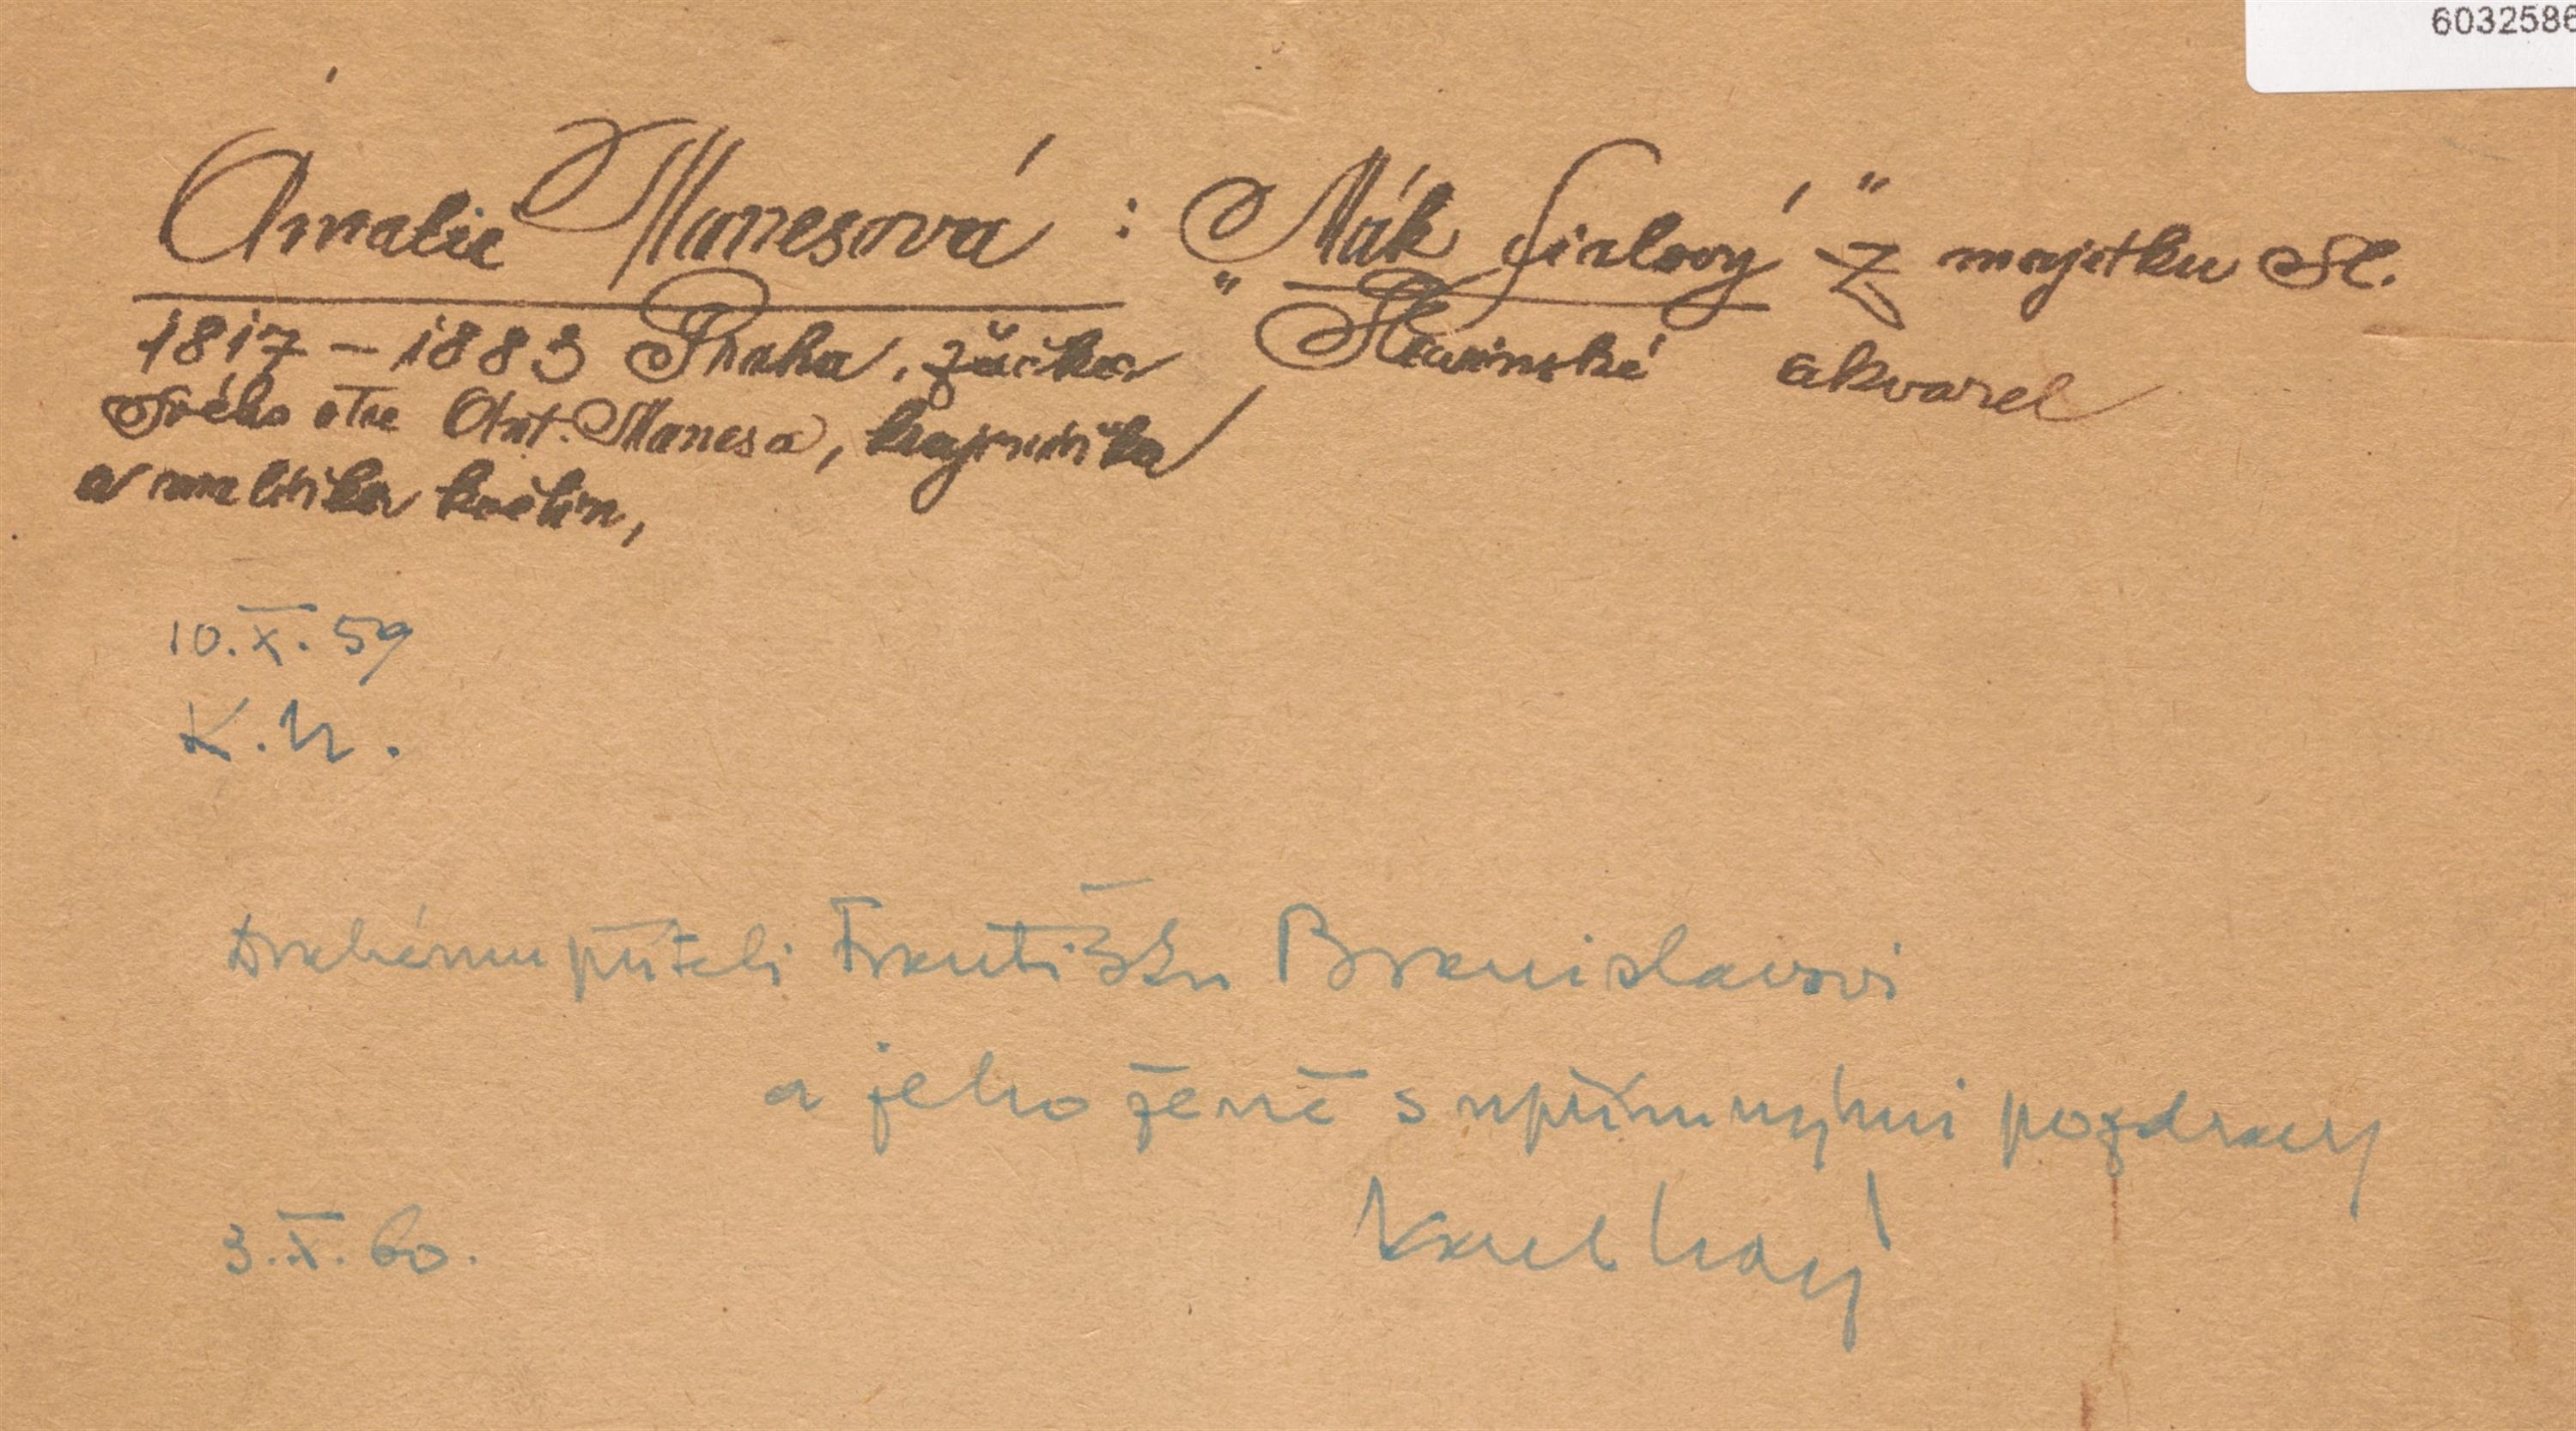 6032586
Amalie Manesová : „Mák fialový" z majetku sl.
1817 – 1883 Praha, žačka Slavínské akvarel
svého otce Ant. Manesa, krajinářka
a malířka květin,
10. X. 59
K. N.
Drahému příteli Františku Branislavovi
a jeho ženě s upřímnými pozdravy
3. X. 60. Karel